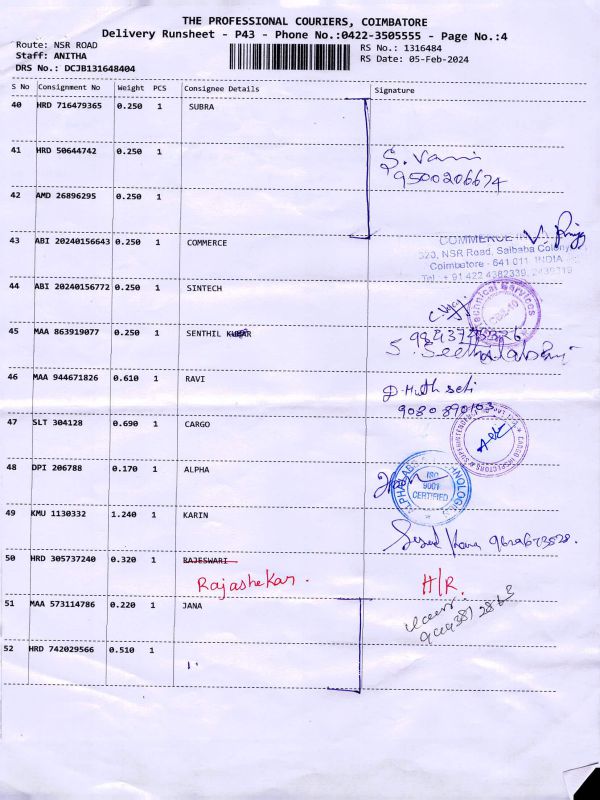 THE PROFESSIONAL COURIERS, COIMBATORE
Delivery Runsheet - P43 - Phone No.:0422-3505555 - Page No.:4
Route: NSR ROAD
RS No.: 1316484
Staff: ANITHA
RS Date: 05-Feb-2024
DRS No.: DCJB131648404
S No Consignment No Weight PCS Consignee Details Signature
40 HRD 716479365 0.250 1 SUBRA
41 HRD 50644742 0.250 1 S. Vani
9500206674
42 AMD 26896295 0.250 1
43 ABI 20240156643 0.250 1 COMMERCE
COMMERCE
320, NSR Road, Saibaba Colony
Coimbatore - 641 011. INDIA
Tel : + 91 422 4382339, 2439719
44 ABI 20240156772 0.250 1 SINTECH
Technical Services
45 MAA 863919077 0.250 1 SENTHIL KUMAR
46 MAA 944671826 0.610 1 RAVI
9080890103
47 SLT 304128 0.690 1 CARGO
CARGO INSPECTORS & SUPERINTENDENCE
48 DPI 206788 0.170 1 ALPHA
ISO
9001
CERTIFIED
49 KMU 1130332 1.240 1 KARIN
9629673528.
50 HRD 305737240 0.320 1 RAJESWARI
Rajashekar. H/R.
51 MAA 573114786 0.220 1 JANA
52 HRD 742029566 0.510 1